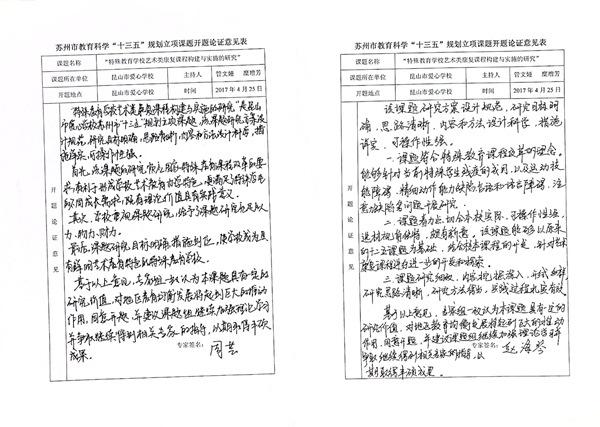 苏州市教育科学“十三五”规划立项课题开题论证意见表
课题名称 “特殊教育学校艺术类康复课程构建与实施的研究”
课题所在单位 昆山市爱心学校 主持人 管文娅 糜增芳
开题地点 昆山市爱心学校 时间 2017 年 4 月 25 日
开题论证意见
“特殊教育学校艺术类康复课程构建与实施的研究”是昆山
市爱心学校苏州市“十三五”规划立项课题，该课题研究方案设
计规范，研究目标明确，思路清晰，内容和方法设计科学，措
施详实，可操作性强。
首先，该课题的研究
有利于形成学校艺术教育办学特色，
的不同成长需求，既有理论价值具有实践意义。
其次，学校重视课题研究，给予了课题研究充足人
力、物力、财力。
最后，课题研究目标明确，措施到位，使学校成为具
有鲜明艺术教育特色的特殊教育学校。
基于以上意见，专家组一致认为本课题具有一定的
研究价值，对地区教育均衡发展将起到巨大的推动
作用，同意开题，并建议课题组继续加强理论学习
并争取继续得到相关专家的指导，以期取得丰硕
成果。
专家签名：周芸
苏州市教育科学“十三五”规划立项课题开题论证意见表
课题名称 “特殊教育学校艺术类康复课程构建与实施的研究”
课题所在单位 昆山市爱心学校 主持人 管文娅 糜增芳
开题地点 昆山市爱心学校 时间 2017 年 4 月 25 日
开题论证意见
该课题研究方案设计规范，研究目标明
确，思路清晰，内容和方法设计科学，措施
详实，可操作性强。
一.课题符合特殊教育课程改革的理念，
能够针对当前特殊学生残疾的成因，以及运动技
能障碍，精细动作能力缺陷言语和语言障碍，注
意力缺陷等问题开展研究。
二.课题着力点切合本校实际，可操作性强，
选材视角独特，颇有新意。该课题能够以原来
的十二五课题为基础，结合校本课程的开发，针对艺术
康复课程进行进一步的开发和探索。
三.课题研究细致，内容视域深入，形式多样
研究思路清晰，研究方法得当，实践过程扎实有效。
基于以上意见，专家组一致认为本课题具有一定的
研究价值，对地区教育均衡发展将起到巨大的推动
作用，同意开题，并建议课题组继续加强理论学习并
争取继续得到相关专家的指导，以
期取得丰硕成果。
专家签名：赵海琴